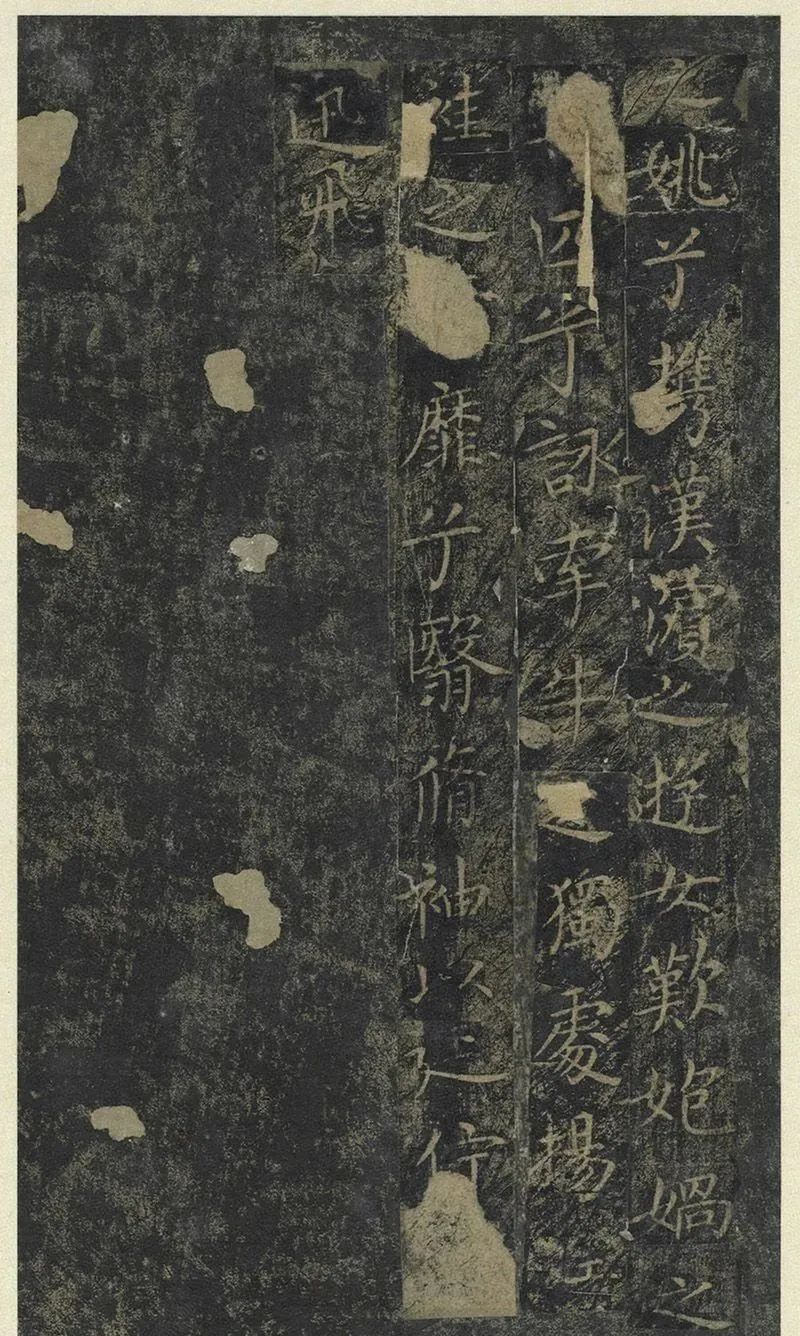 二姚兮攜漢濱之遊女歎㚿媧之
匹兮詠牽牛之獨處揚
袿之靡兮翳脩袖以延佇
迅飛